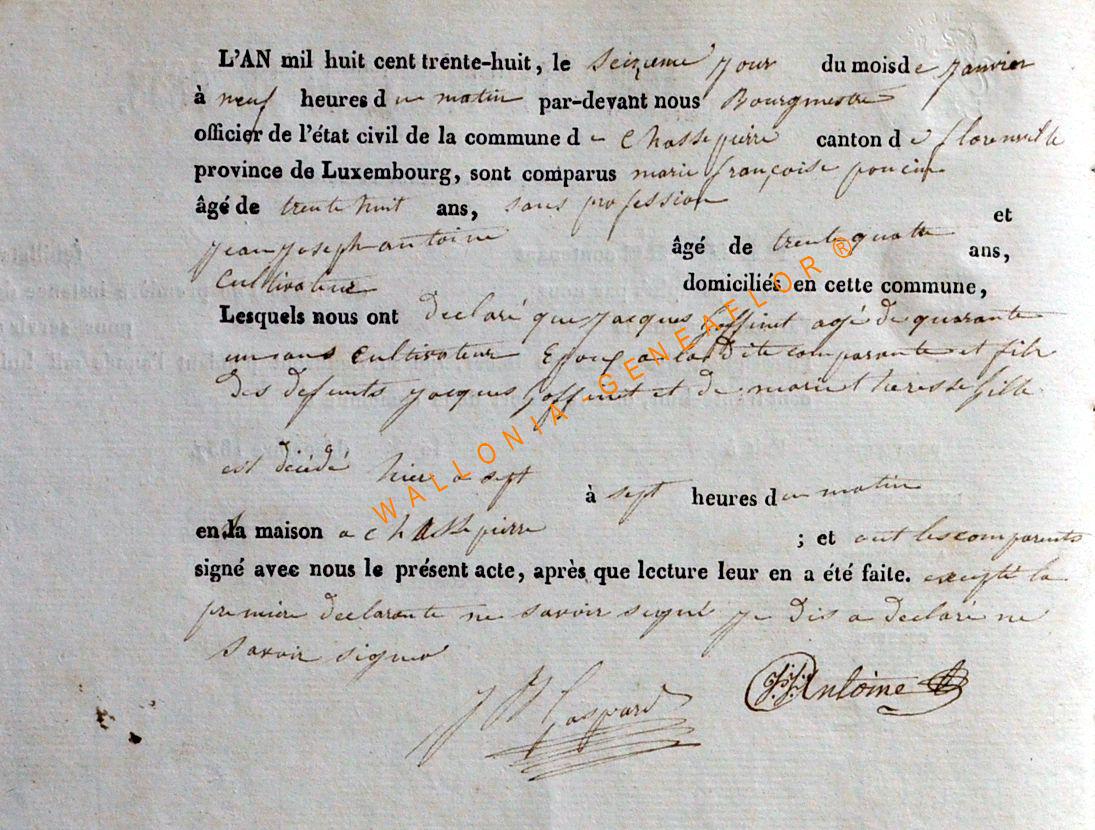 L'AN mil huit cent trente-huit, le Seizieme jour du mois de janvier
à neuf heures du matin par-devant nous Bourgmestre
officier de l'état civil de la commune de Chassepierre canton de florenville
province de Luxembourg, sont comparus marie françoise poncin
âgé de trente huit ans, sans profession et
jean joseph antoine âgé de trente quatre ans,
Cultivateur domiciliés en cette commune,
Lesquels nous ont declaré que jacques Goffinet agé de quarante
un ans Cultivateur Epoux a la dite comparante et fils
des defunts jacques Goffinet et de marie theresse gille
est décédé hier a sept à sept heures du matin
en la maison a chassepierre ; et ont les comparents
signé avec nous le présent acte, après que lecture leur en a été faite. excepté la
premiere declarante ne savoir signé je dis a declaré ne
savoir signer
Gaspard J.J. Antoine
WALLONIA-GENEAFLOR ®